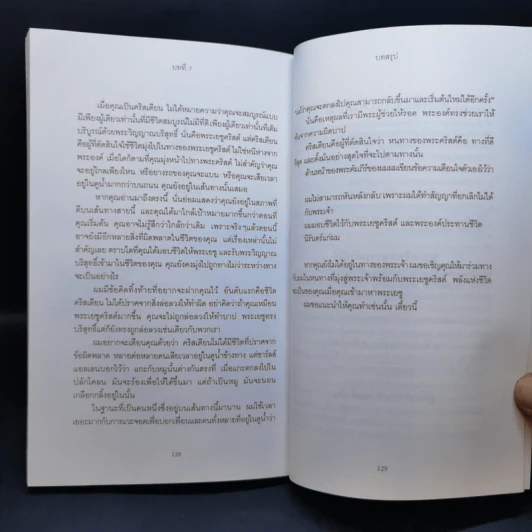 บทที่ 7
เมื่อคุณเป็นคริสเตียน ไม่ได้หมายความว่าคุณจะสมบูรณ์แบบ
มีเพียงผู้เดียวเท่านั้นที่มีชีวิตสมบูรณ์ไม่มีที่ติ เพียงผู้เดียวเท่านั้นที่เต็ม
บริบูรณ์ด้วยพระวิญญาณบริสุทธิ์ นั่นคือพระเยซูคริสต์ แต่คริสเตียน
คือผู้ที่ตัดสินใจใช้ชีวิตมุ่งไปในทางของพระเยซูคริสต์ ไม่ใช่หนีห่างจาก
พระองค์ เมื่อใดก็ตามที่คุณมุ่งหน้าไปทางพระคริสต์ ไม่สำคัญว่าคุณ
จะอยู่ไกลเพียงไหน หรือยางรถของคุณจะแบน หรือคุณจะเสียเวลา
อยู่ในคูน้ำมากกว่าบนถนน คุณยังอยู่ในเส้นทางนั้นเสมอ
หากคุณอ่านมาถึงตรงนี้ นั่นย่อมแสดงว่าคุณยังอยู่ในสภาพที่
ดีบนเส้นทางสายนี้ และคุณได้มาใกล้เป้าหมายมากขึ้นกว่าตอนที่
คุณเริ่มต้น คุณอาจไม่รู้สึกว่าใกล้กว่าเดิม เพราะจริงๆแล้วตอนนี้
อาจยังมีอีกหลายสิ่งที่ผิดพลาดในชีวิตของคุณ แต่เรื่องเหล่านั้นไม่
สำคัญเลย ตราบใดที่คุณได้มอบชีวิตให้พระเยซู และรับพระวิญญาณ
บริสุทธิ์เข้ามาในชีวิตของคุณ คุณยังคงมุ่งไปถูกทางไม่ว่าระหว่างทาง
จะเป็นอย่างไร
ผมมีข้อคิดทิ้งท้ายที่อยากจะฝากคุณไว้ อันดับแรกคือชีวิต
คริสเตียน ไม่ได้ปราศจากสิ่งล่อลวงให้ทำผิด อย่าคิดว่าถ้าคุณเหมือน
พระเยซูคริสต์มากขึ้น คุณจะไม่ถูกล่อลวงให้ทำบาป พระเยซูทรง
บริสุทธิ์แต่ก็ยังทรงถูกล่อลวงเช่นเดียวกับพวกเรา
ผมอยากจะเตือนคุณด้วยว่า คริสเตียนไม่ได้มีชีวิตที่ปราศจาก
ข้อผิดพลาด หลายต่อหลายคนเสียเวลาอยู่ในคูน้ำข้างทาง แต่ชาร์ลส์
แอลเลนบอกไว้ว่า แกะกับหมูนั้นต่างกันตรงที่ เมื่อแกะตกลงไปใน
ปลักโคลน มันจะร้องเพื่อให้ได้ขึ้นมา แต่ถ้าเป็นหมู มันจะนอน
เกลือกกลิ้งอยู่ในนั้น
ในฐานะที่เป็นคนหนึ่งซึ่งอยู่บนเส้นทางนี้มานาน ผมใช้เวลา
เยอะมากกับการแวะจอดเพื่อบอกเพื่อนและคนทั้งหลายที่อยู่ในคูน้ำว่า
128
บทสรุป
"แม้ว่าคุณจะตกลงไปคุณสามารถกลับขึ้นมาและเริ่มต้นใหม่ได้อีกครั้ง"
นั่นคือเหตุผลที่เรามีพระผู้ช่วยให้รอด พระองค์ทรงช่วยเราให้
รอดจากความผิดบาป
คริสเตียนคือผู้ที่ตัดสินใจว่า หนทางของพระคริสต์คือ ทางที่ดี
ที่สุด และตั้งมั่นอย่างสุดใจที่จะไปตามทางนั้น
ด้านหน้าของพระคัมภีร์ของผมผมเขียนข้อความเตือนใจตัวเองไว้ว่า
ผมไม่สามารถหันหลังกลับ เพราะผมได้ทำสัญญาที่ยกเลิกไม่ได้
กับพระเจ้า
ผมมอบชีวิตไว้กับพระเยซูคริสต์ และพระองค์ประทานชีวิต
นิรันดร์แก่ผม
หากคุณยังไม่ได้อยู่ในทางของพระเจ้า ผมขอเชิญคุณให้มาร่วมทาง
กับผมในหนทางที่มุ่งสู่พระเจ้าพร้อมกับพระเยซูคริสต์ พลังแห่งชีวิต
จะเป็นของคุณเมื่อคุณเข้ามาหาพระเยซู
ผมขอแนะนำให้คุณทำเช่นนั้น เดี๋ยวนี้
129